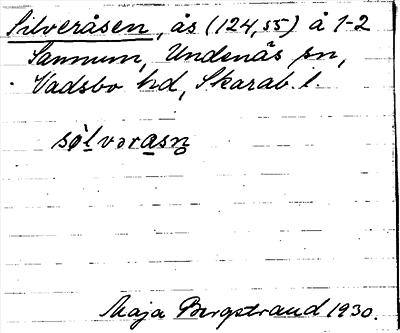 Silveråsen, ås (124,55) å 1-2
Sannum, Undenäs sn,
Vadsbo hd, Skarab. l.
sólvərasn̥
Maja Bergstrand 1930.